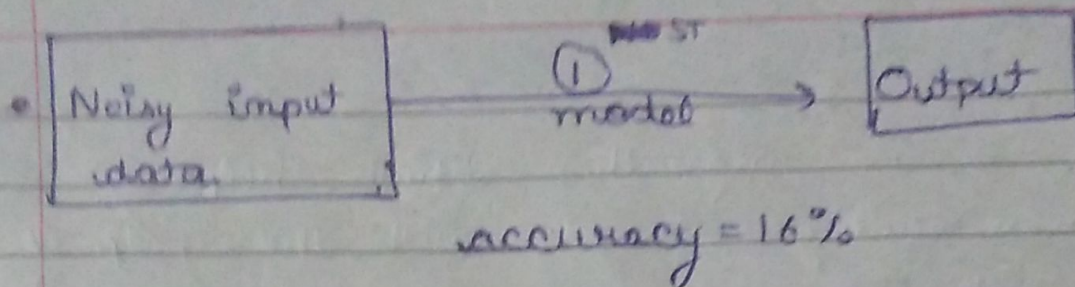 Noisy input
data.
① ST
model
Output
accuracy = 16%